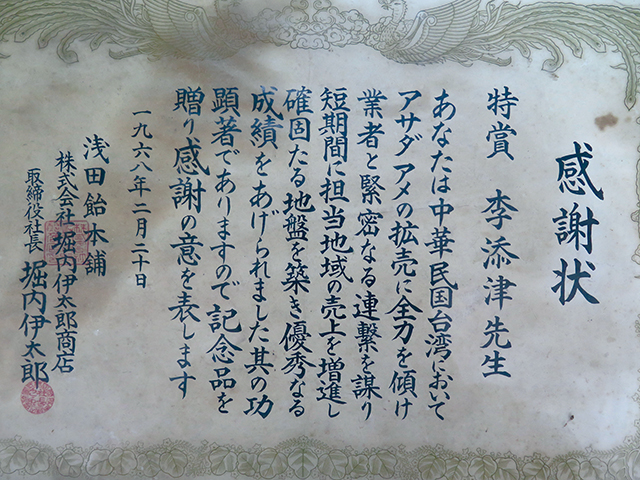 感謝状
特賞 李添津先生
あなたは中華民国台湾において
アサダアメの拡売に全力を傾け
業者と緊密なる連繋を謀り
短期間に担当地域の売上を増進し
確固たる地盤を築き優秀なる
成績をあげられました其の功
顕著でありますので記念品を
贈り感謝の意を表します
一九六八年二月二十日
浅田飴本舗
株式会社堀内伊太郎商店
取締役社長 堀内伊太郎